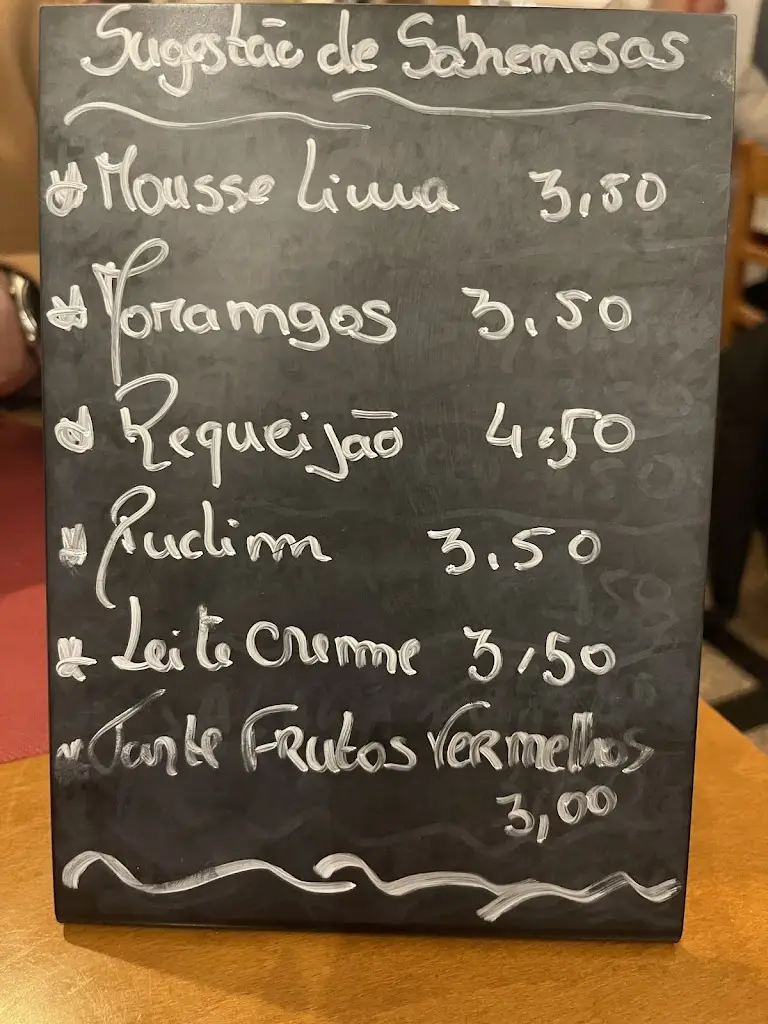 Sugestão de Sobremesas
Mousse Lima 3,50
Moramgos 3,50
Requeijão 4,50
Pudim 3.50
Leite Creme 3,50
Tarte Frutos Vermelhos
3,00